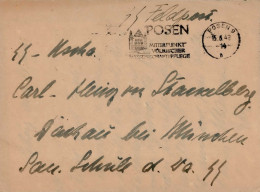 Feldpost.
POSEN
MITTELPUNKT
POSEN 9
-14-
a
SS-Uscha.
Carl-Heinz von Stackelberg
Dachau bei München
San. Schule d. Wa. SS